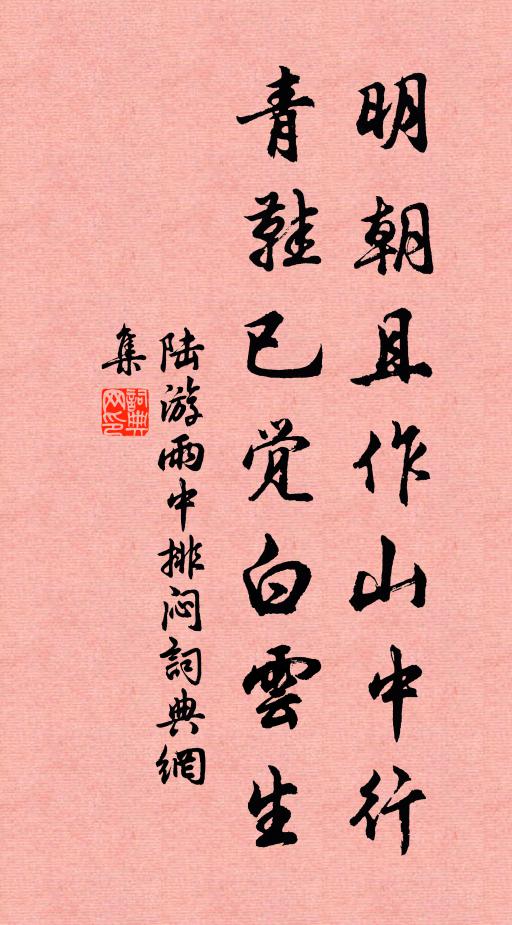 明朝且作山中行
青鞋已觉白雲生
陆游雨中排闷詞典網
集
詞典网印